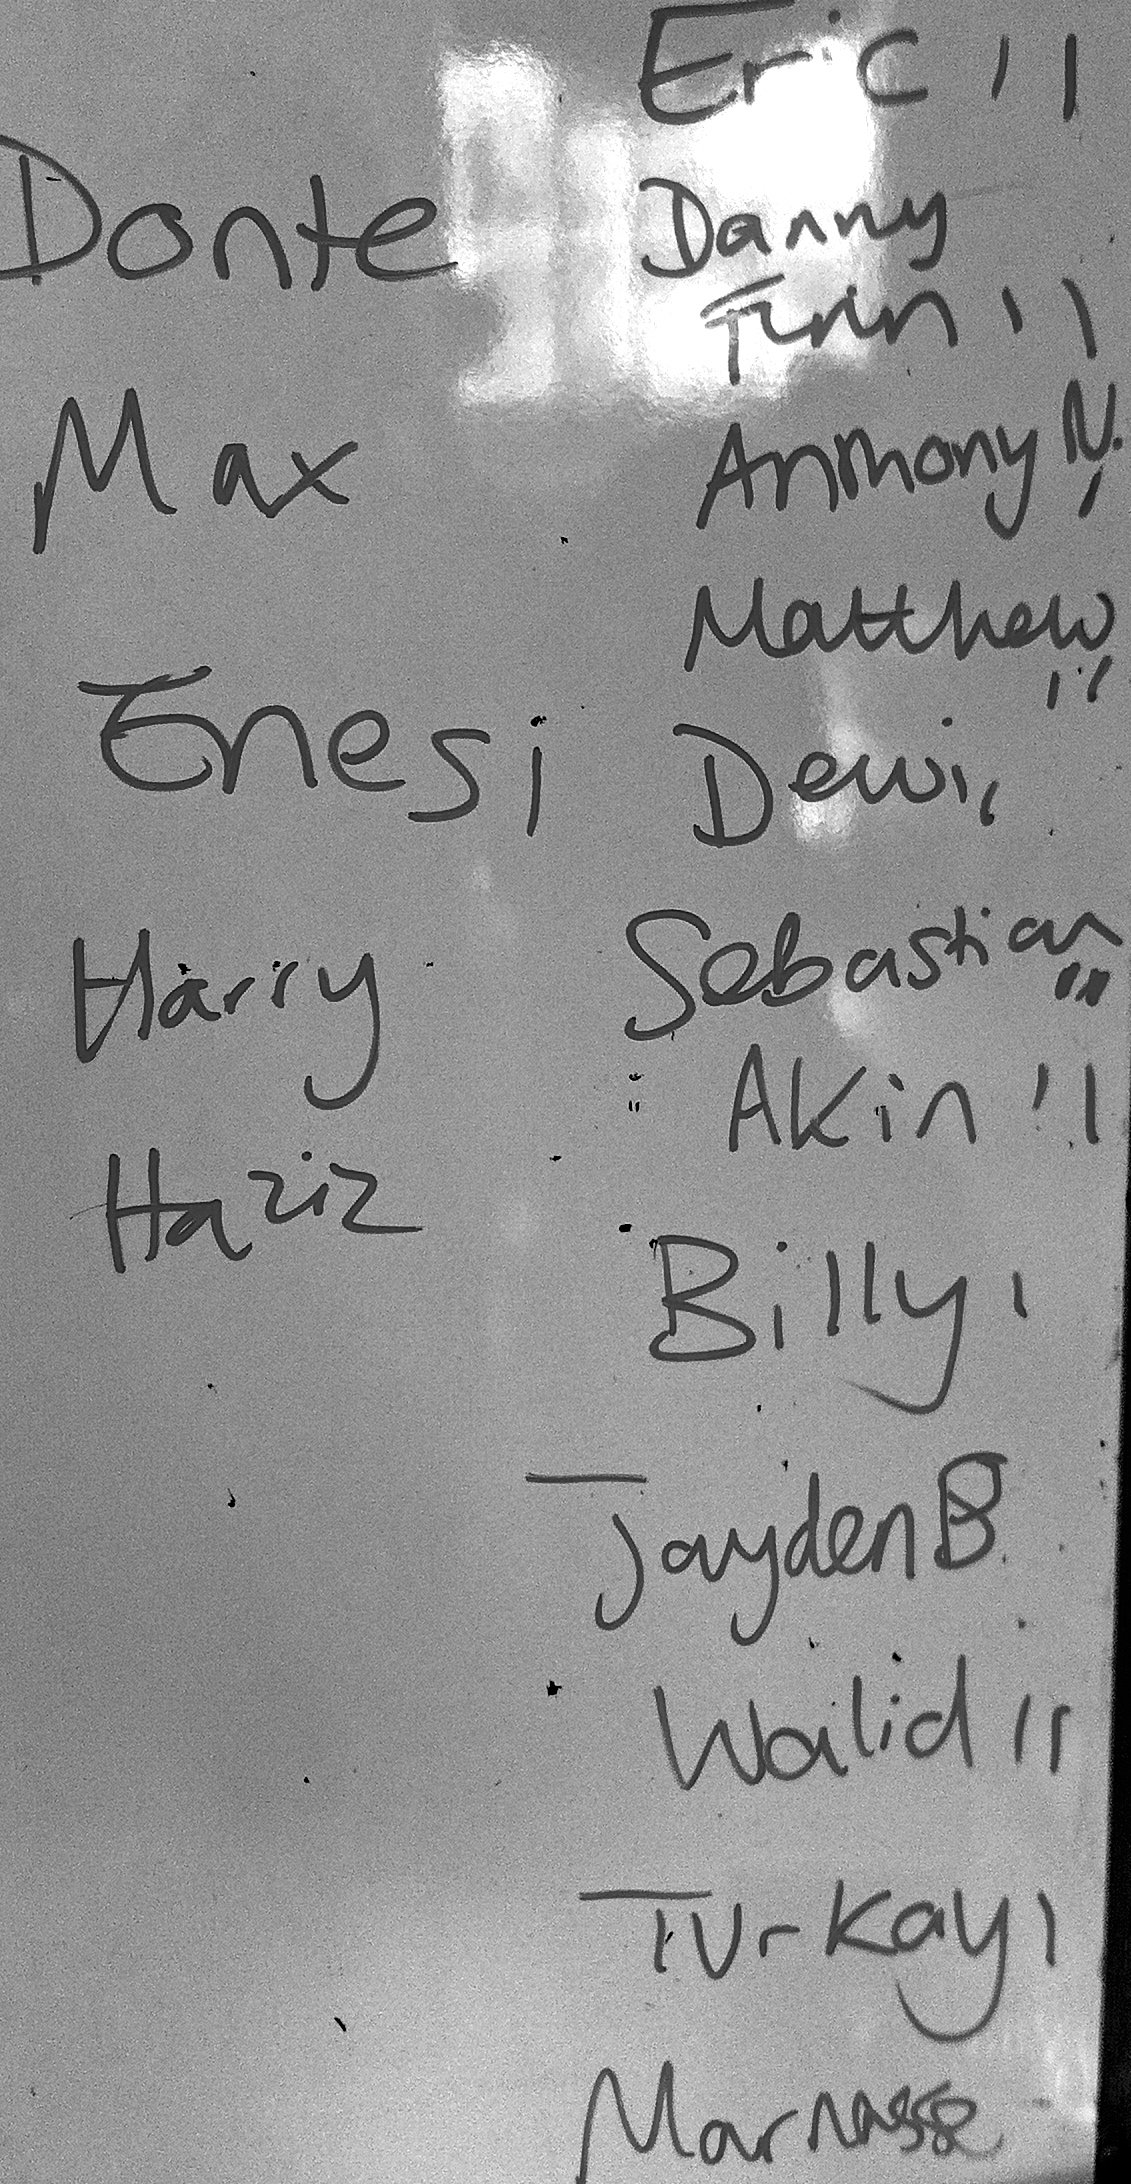 Donte
Max
Enesi
Harry
Haziz
Eric ||
Danny
Finn ||
Anthony N. |
Matthew ||
Dewi |
Sebastian |||
Akin ||
Billy |
Jayden B
Wailid ||
Turkay |
Marnasse